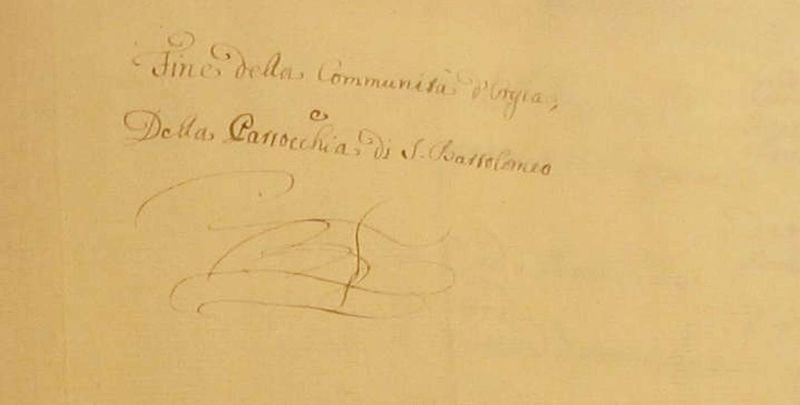 Fine della Communità d'Orgia,
e
Della Parrocchia di S. Bartolomeo